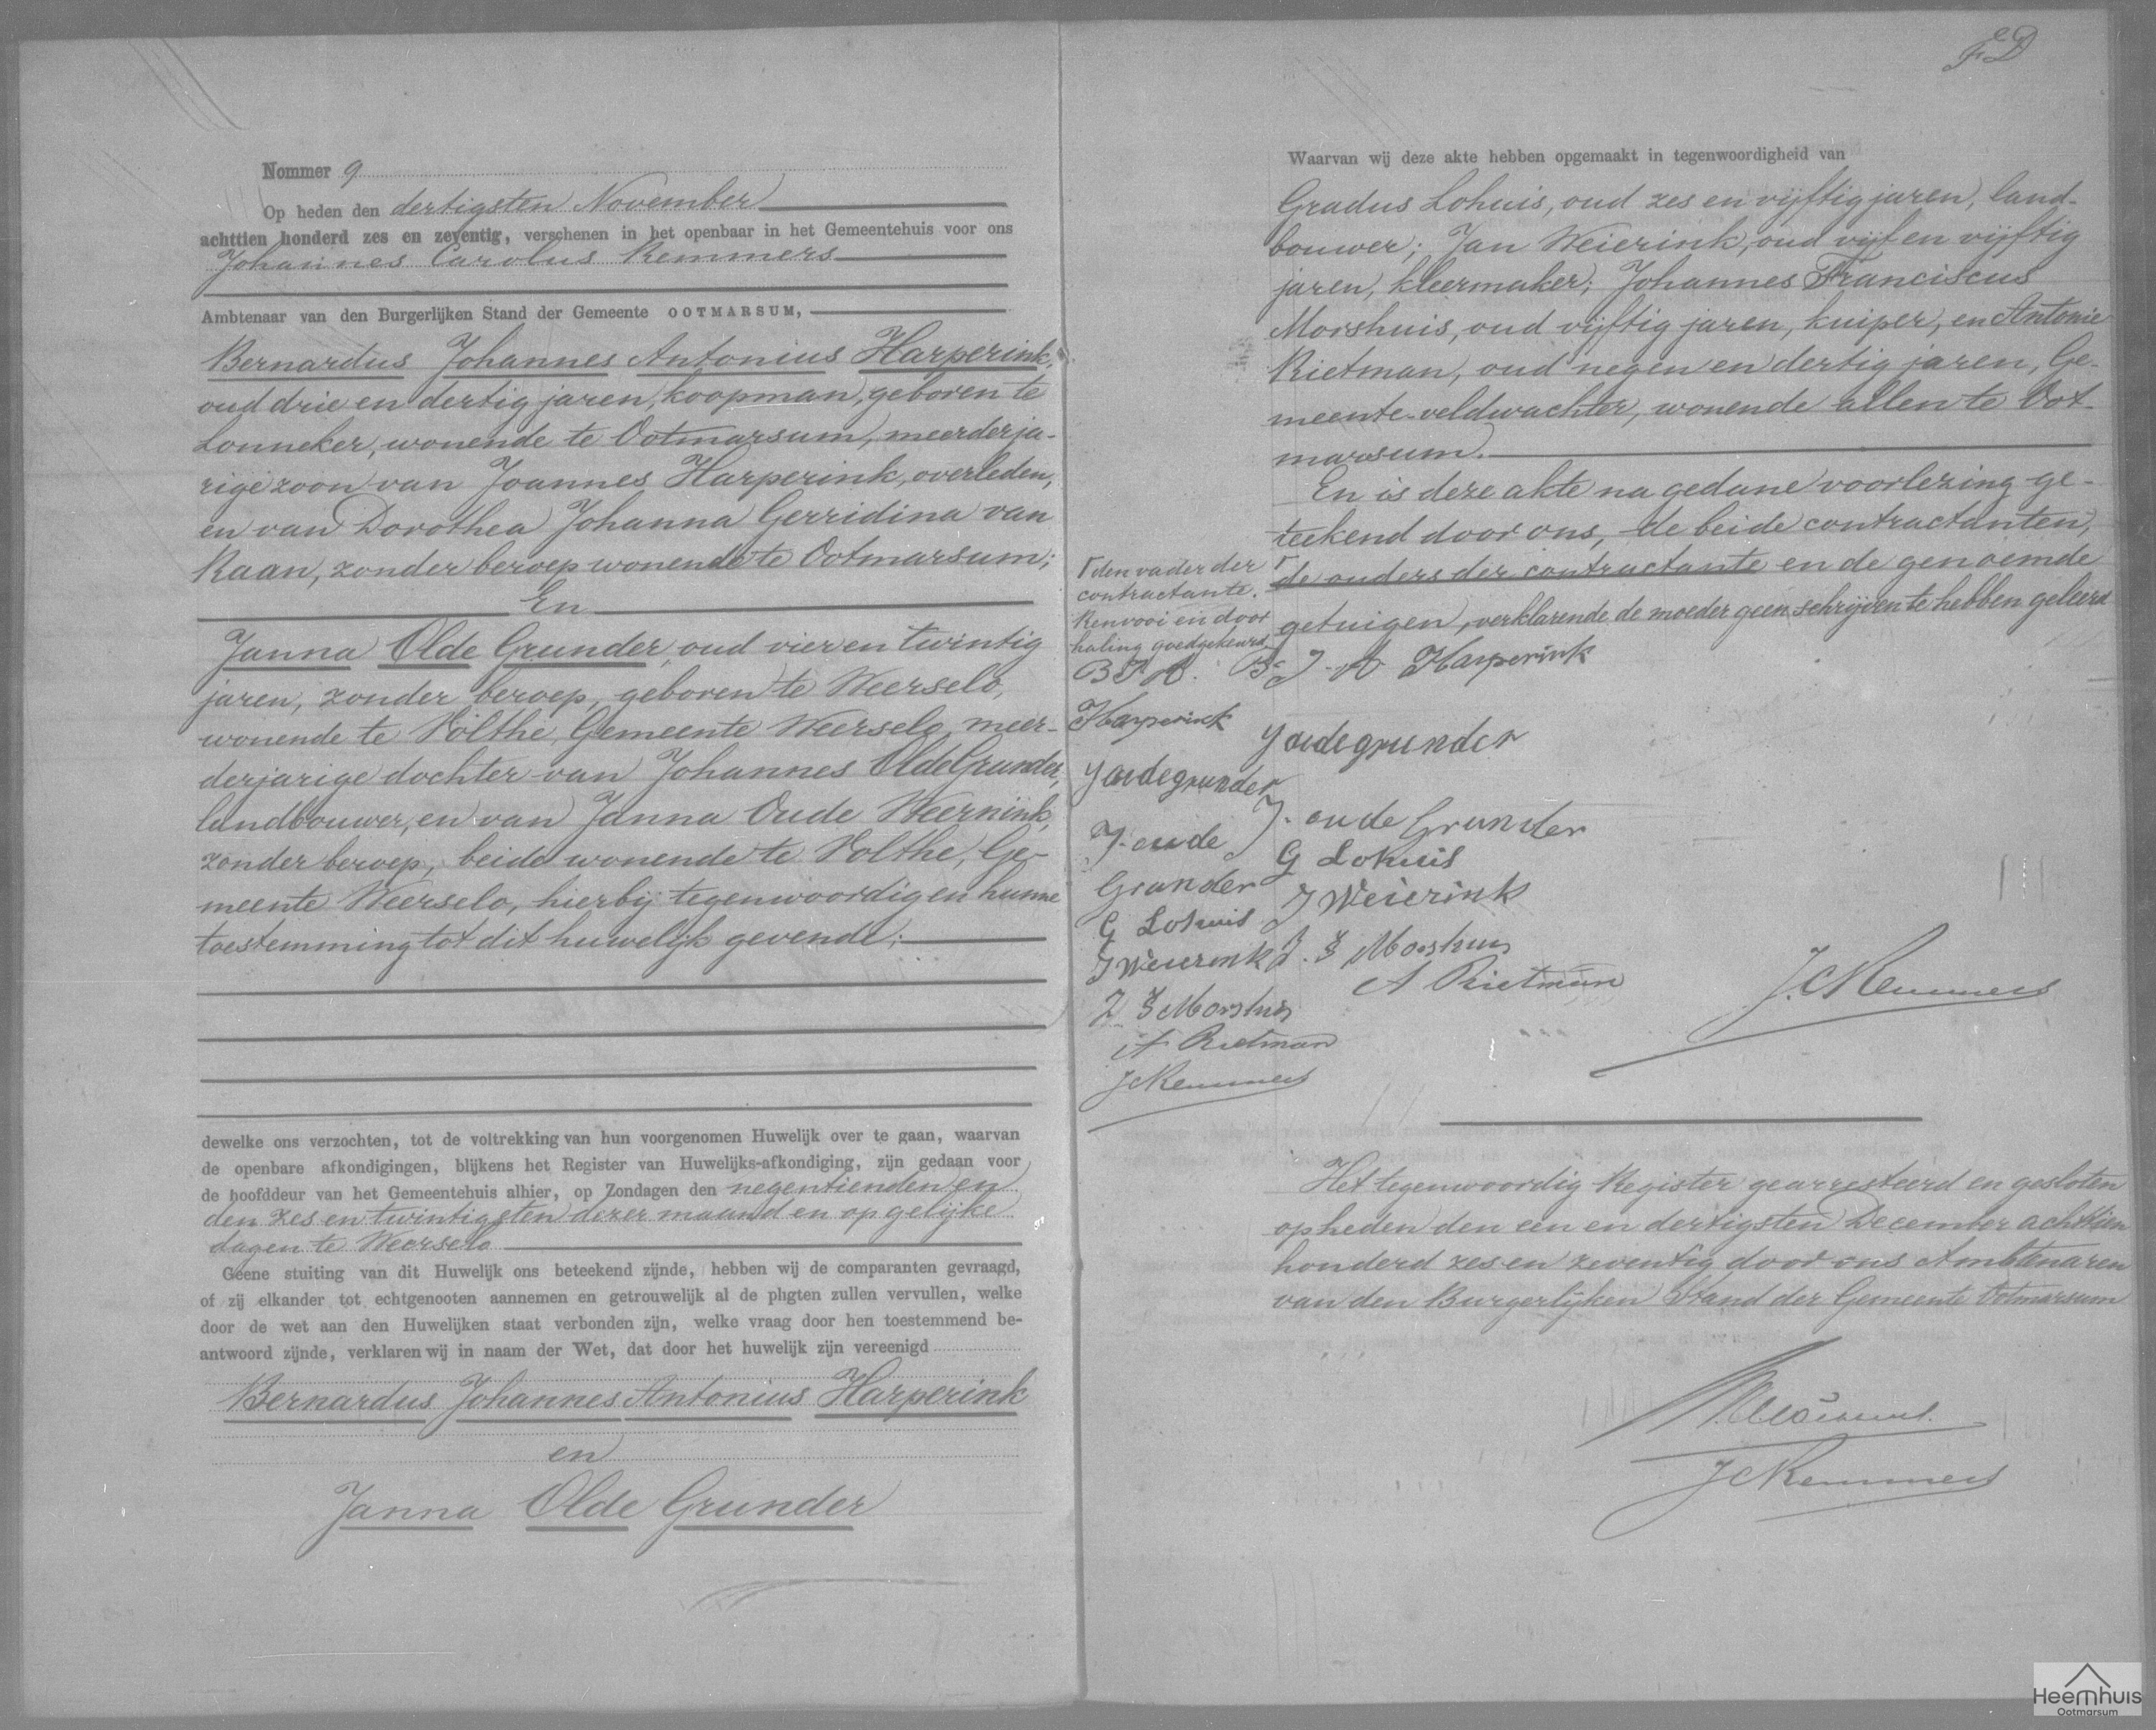 Nommer 9
Op heden den dertigsten November
achttien honderd zes en zeventig, verschenen in het openbaar in het Gemeentehuis voor ons
Johannes Carolus Remmers
Ambtenaar van den Burgerlijken Stand der Gemeente OOTMARSUM,
Bernardus Johannes Antonius Harperink,
oud drie en dertig jaren, koopman, geboren te
Lonneker, wonende te Ootmarsum, meerderja-
rige zoon van Joannes Harperink, overleden,
en van Dorothea Johanna Gerridina van
Raan, zonder beroep wonende te Ootmarsum;
En
Janna Olde Grunder, oud vier en twintig
jaren, zonder beroep, geboren te Weerselo,
wonende te Volthe, Gemeente Weerselo, meer-
derjarige dochter van Johannes Olde Grunder,
landbouwer, en van Janna Oude Weernink,
zonder beroep, beide wonende te Volthe, Ge-
meente Weerselo, hierbij tegenwoordig en hunne
toestemming tot dit huwelijk gevende;
dewelke ons verzochten, tot de voltrekking van hun voorgenomen Huwelijk over te gaan, waarvan
de openbare afkondigingen, blijkens het Register van Huwelijks-afkondiging, zijn gedaan voor
de hoofddeur van het Gemeentehuis alhier, op Zondagen den negentienden en
den zes en twintigsten dezer maand en op gelijke
dagen te Weerselo
Geene stuiting van dit Huwelijk ons beteekend zijnde, hebben wij de comparanten gevraagd,
of zij elkander tot echtgenooten aannemen en getrouwelijk al de pligten zullen vervullen, welke
door de wet aan den Huwelijken staat verbonden zijn, welke vraag door hen toestemmend be-
antwoord zijnde, verklaren wij in naam der Wet, dat door het huwelijk zijn vereenigd
Bernardus Johannes Antonius Harperink
en
Janna Olde Grunder
Waarvan wij deze akte hebben opgemaakt in tegenwoordigheid van
Gradus Lohuis, oud zes en vijftig jaren, land-
bouwer; Jan Weierink, oud vijf en vijftig
jaren, kleermaker; Johannes Franciscus
Morshuis, oud vijftig jaren, kuiper, en Antonie
Rietman, oud negen en dertig jaren, Ge-
meente-veldwachter, wonende allen te Oot-
marsum.
En is deze akte na gedane voorlezing ge-
teekend door ons, de beide contractanten,
de ouders der contractante en de genoemde
getuigen, verklarende de moeder geen schrijven te hebben geleerd
B J A Harperink
J oudegrunder
J. oude Grunder
G Lohuis
J Weierink
J. F Morshuis
A Rietman
J.C Remmers
den vader der
contractante.
Renvooi en door
haling goedgekeurd
B J A.
Harperink
J oudegrunder
J. oude
Grunder
G Lohuis
J Weierink
J F Morshuis
A Rietman
JC Remmers
Het tegenwoordig Register gearresteerd en gesloten
op heden den een en dertigsten December achttien
honderd zes en zeventig door ons Ambtenaren
van den Burgerlijken Stand der Gemeente Ootmarsum
JC Remmers
Heemhuis
Ootmarsum